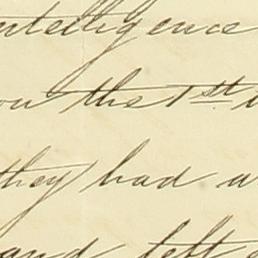 ntelligence
on the 1st
they had a
and left